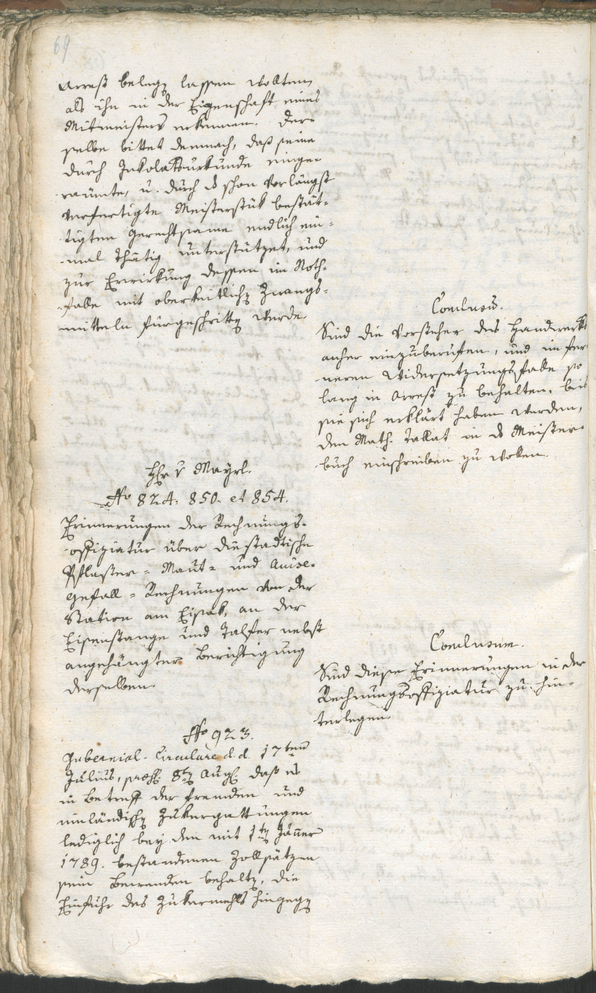 69
Arrest belegen lassen wollten,
als ihn in der Eigenschaft eines
Mitmeisters erkennen. Der-
selbe bittet demnach, daß seine
durch Inkolatturkunde einge-
raumte, u. durch das schon vorlängst
verfertigte Meisterstük bestät-
tigten Gerechtsame endlich ein-
mal thätig unterstützet, und
zur Erwirkung dessen im Noth-
falle mit oberkeitlichen Zwangs-
mitteln fürgeschritten werde.
Conclusum.
Sind die Vorsteher des Handwerks
anher einzuberufen, und im fer-
neren Widersetzungsfalle so
lang in Arrest zu behalten, bis
sie sich erklärt haben werden,
den Math. Takat in das Meister-
buch einschreiben zu wollen.
Hr. v. Mayrl.
No 824. 850. et 854.
Erinnerungen der Rechnungs-
offiziatur über die stadtische
Pflaster- Maut- und
Gefäll-Rechnungen von der
Station am Eisak, an der
Eisenstange und Talfer nebst
angehängter Berichtigung
derselben.
Conclusum.
Sind diese Erinnerungen in der
Rechnungsoffiziatur zu hin-
terlegen.
No 923.
Gubernial-Circulare d. d. 17ten
Julius, 8ten Aug. daß es
in Betreff der fremden und
innländischen Zukergattungen
lediglich bey den mit 1ten Jäner
1789. bestandenen Zollsätzen
sein Bewenden behalte, die
Einfuhr des Zukermehls hingegen